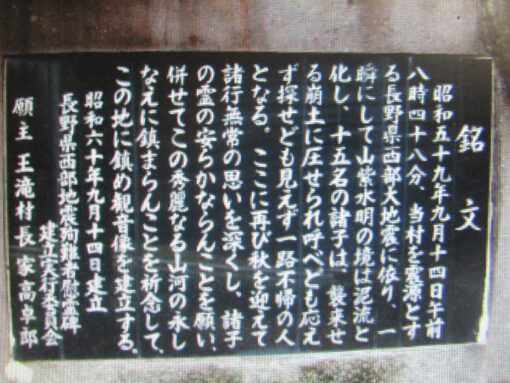 銘文
昭和五十九年九月十四日午前
八時四十八分、当村を震源とす
る長野県西部大地震に依り、一
瞬にして山紫水明の境は泥流と
化し、十五名の諸子は、襲来せ
る崩土に圧せられ呼べども応え
ず探せども見えず一路不帰の人
となる。ここに再び秋を迎えて
諸行無常の思いを深くし、諸子
の霊の安らかならんことを願い、
併せてこの秀麗なる山河の永し
なえに鎮まらんことを祈念して、
この地に鎮め観音像を建立する。
昭和六十年九月十四日建立
長野県西部地震殉難者慰霊碑
建立実行委員会
願主 王滝村長 家高卓郎